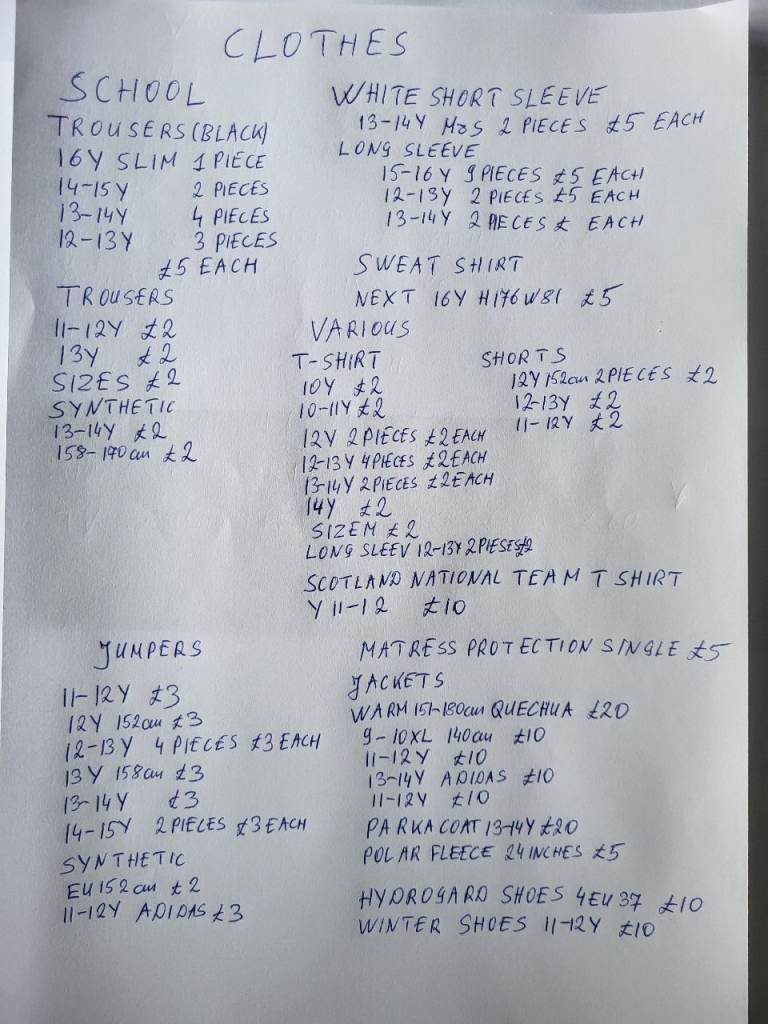 CLOTHES
SCHOOL
TROUSERS (BLACK)
16Y SLIM 1 PIECE
14-15Y 2 PIECES
13-14Y 4 PIECES
12-13Y 3 PIECES
£5 EACH
TROUSERS
11-12Y £2
13Y £2
SIZE S £2
SYNTHETIC
13-14Y £2
158-170cm £2
WHITE SHORT SLEEVE
13-14Y M&S 2 PIECES £5 EACH
LONG SLEEVE
15-16Y 9 PIECES £5 EACH
12-13Y 2 PIECES £5 EACH
13-14Y 2 PIECES £ EACH
SWEAT SHIRT
NEXT 16Y H176 W81 £5
VARIOUS
T-SHIRT
10Y £2
10-11Y £2
12Y 2 PIECES £2 EACH
12-13Y 4 PIECES £2 EACH
13-14Y 2 PIECES £2 EACH
14Y £2
SIZE M £2
LONG SLEEV 12-13Y 2 PIESES £2
SHORTS
12Y 152cm 2 PIECES £2
12-13Y £2
11-12Y £2
SCOTLAND NATIONAL TEAM T SHIRT
Y 11-12 £10
JUMPERS
11-12Y £3
12Y 152cm £3
12-13Y 4 PIECES £3 EACH
13Y 158cm £3
13-14Y £3
14-15Y 2 PIECES £3 EACH
SYNTHETIC
EU 152cm £2
11-12Y ADIDAS £3
MATRESS PROTECTION SINGLE £5
JACKETS
WARM 151-180cm QUECHUA £20
9-10XL 140cm £10
11-12Y £10
13-14Y ADIDAS £10
11-12Y £10
PARKA COAT 13-14Y £20
POLAR FLEECE 24 INCHES £5
HYDROGARD SHOES 4 EU 37 £10
WINTER SHOES 11-12Y £10